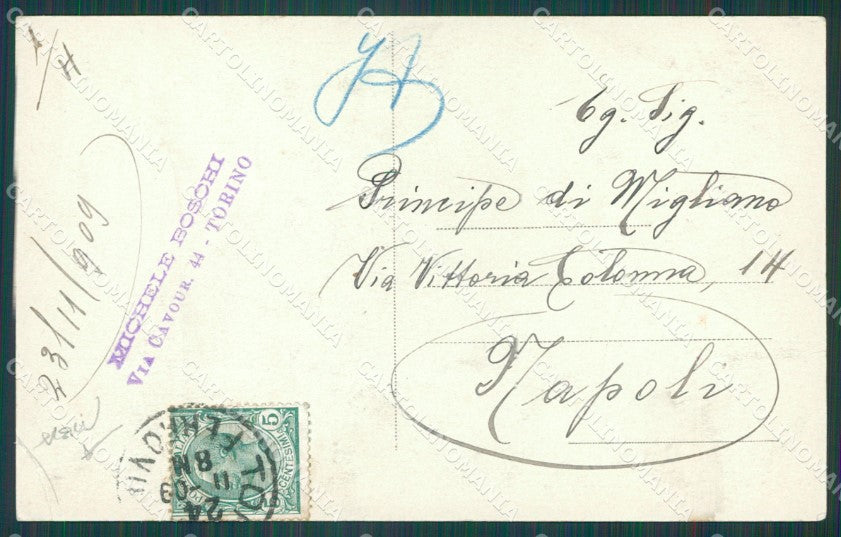 Eg. Sig.
Principe di Migliano
Via Vittoria Colonna, 14
Napoli
MICHELE BOSCHI
VIA CAVOUR. 44 - TORINO
23/11/909
5
CENTESIMI
TO
FERROVIA
8 M
11 - 09
24
CARTOLINOMANIA